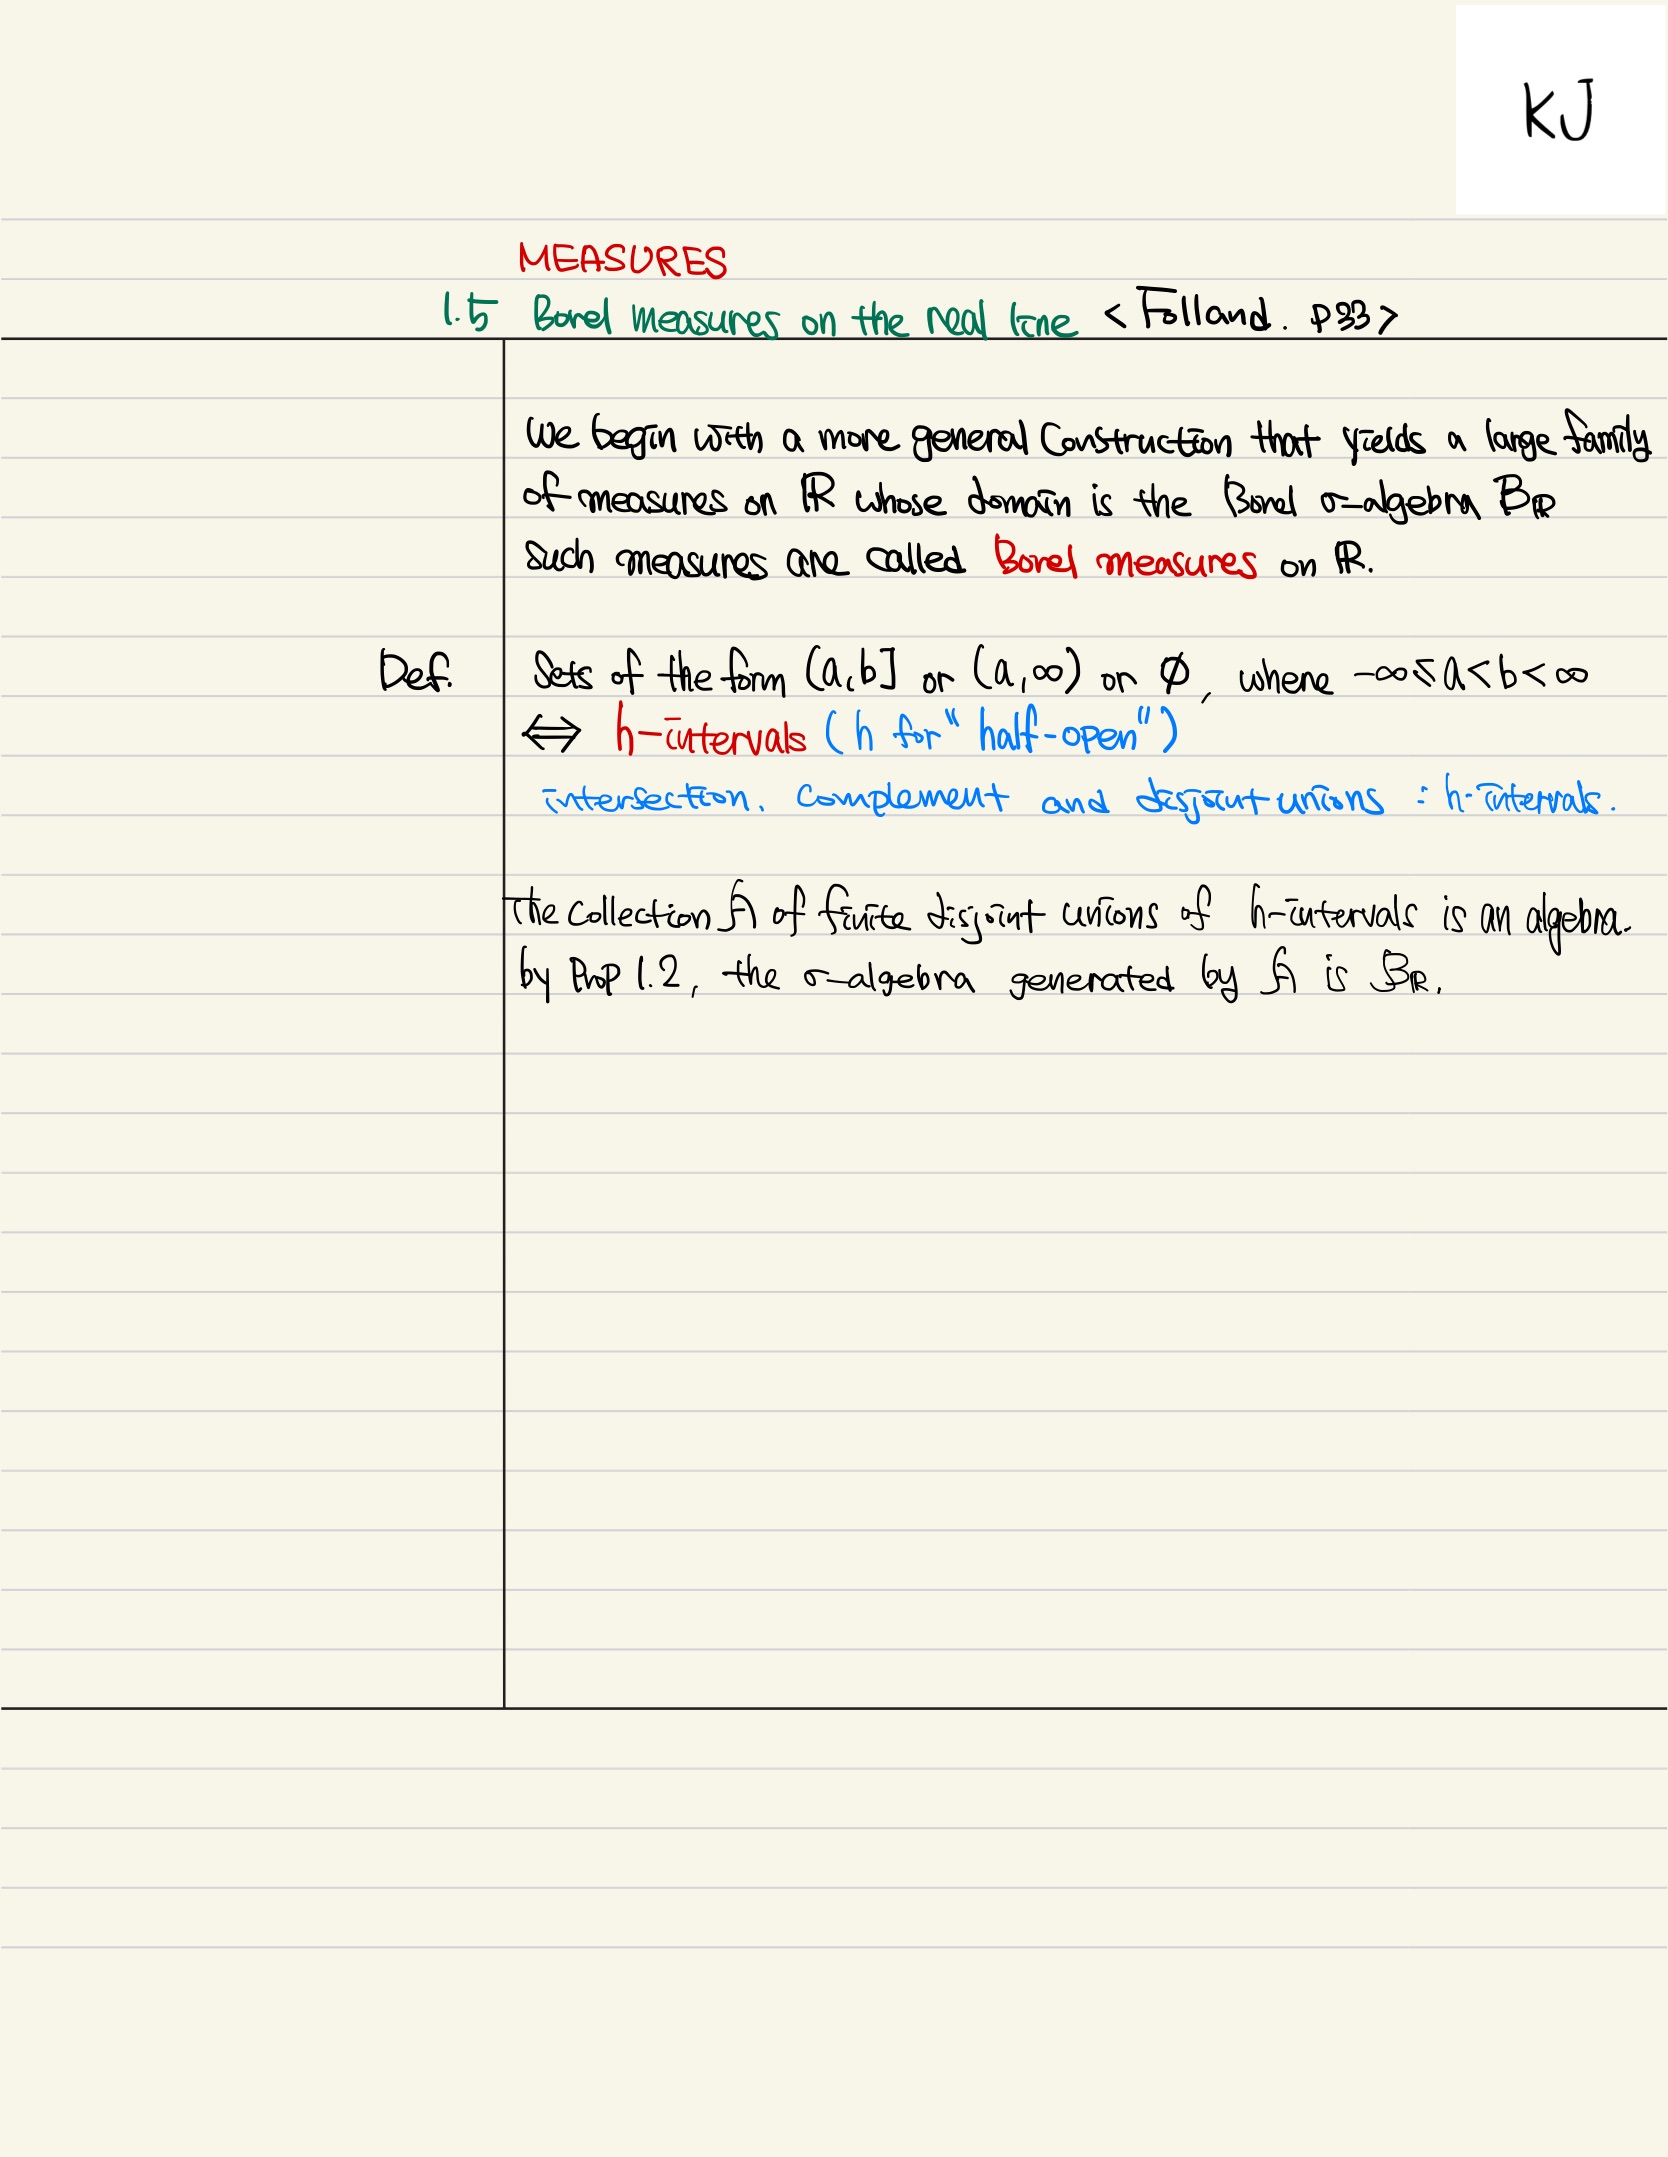 KJ
MEASURES
1.5 Borel measures on the real line <Folland. p33>
We begin with a more general Construction that yields a large family
of measures on ℝ whose domain is the Borel σ-algebra Bℝ
Such measures are called Borel measures on ℝ.
Def. Sets of the form (a,b] or (a,∞) or ∅, where -∞≤a<b<∞
⇔ h-intervals (h for "half-open")
intersection. Complement and disjoint unions : h-intervals.
The collection A of finite disjoint unions of h-intervals is an algebra.
by Prop 1.2, the σ-algebra generated by A is Bℝ.